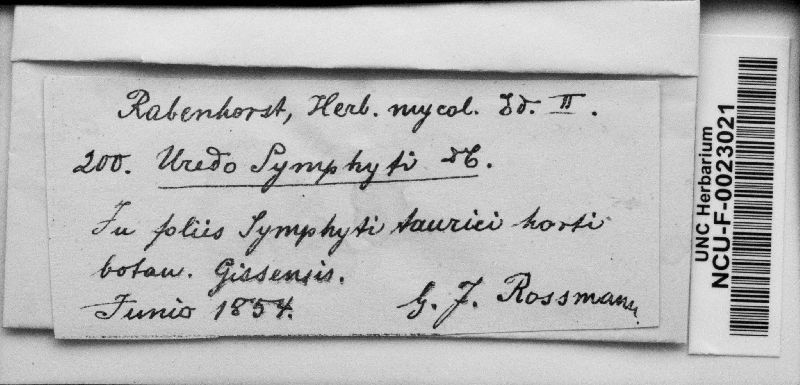 Rabenhorst, Herb. mycol. Ed. II.
200. Uredo Symphyti DC.
In foliis Symphyti taurici horti
botan. Gissensis.
Junio 1854. G. J. Rossmann.
UNC Herbarium
NCU-F-0023021